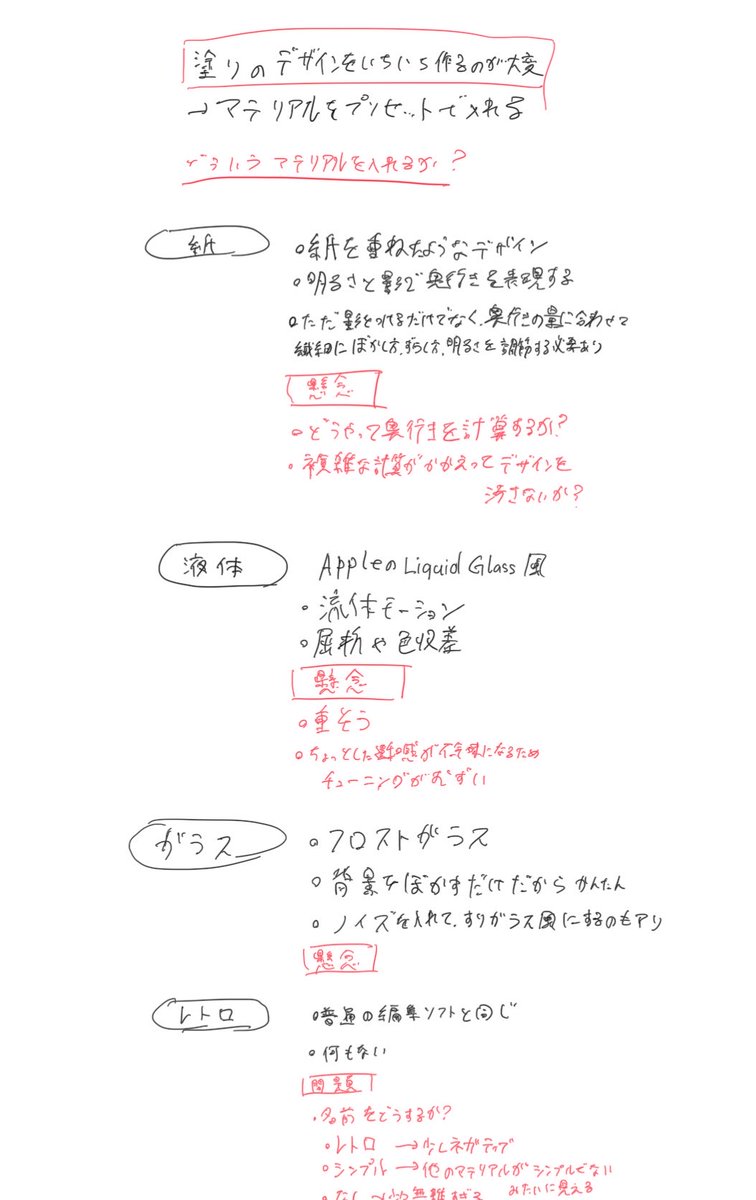 塗りのデザインをいちいち作るのが大変
→マテリアルをプリセットで入れる
どういう マテリアルを入れるか？
紙
○紙を重ねたようなデザイン
○明るさと影で奥行きを表現する
○ただ影をつけるだけでなく、奥行きの量に合わせて
繊細にぼかし方、ずらし方、明るさを調節する必要あり
懸念
○どうやって奥行きを計算するか？
○複雑な計算がかかえってデザインを
汚さないか？
液体
AppleのLiquid Glass風
○流体モーション
○屈折や色収差
懸念
○重そう
○ちょっとした違和感が
になるため
チューニングがむずい
ガラス
○フロストガラス
○背景をぼかすだけだから かんたん
○ノイズを入れて、すりガラス風にするのもアリ
懸念
レトロ
○普通の編集ソフトと同じ
○何もない
問題
・名前をどうするか？
○レトロ →少しネガティブ
○シンプル→他のマテリアルがシンプルでない
みたいに見える
○なし→
無難すぎる